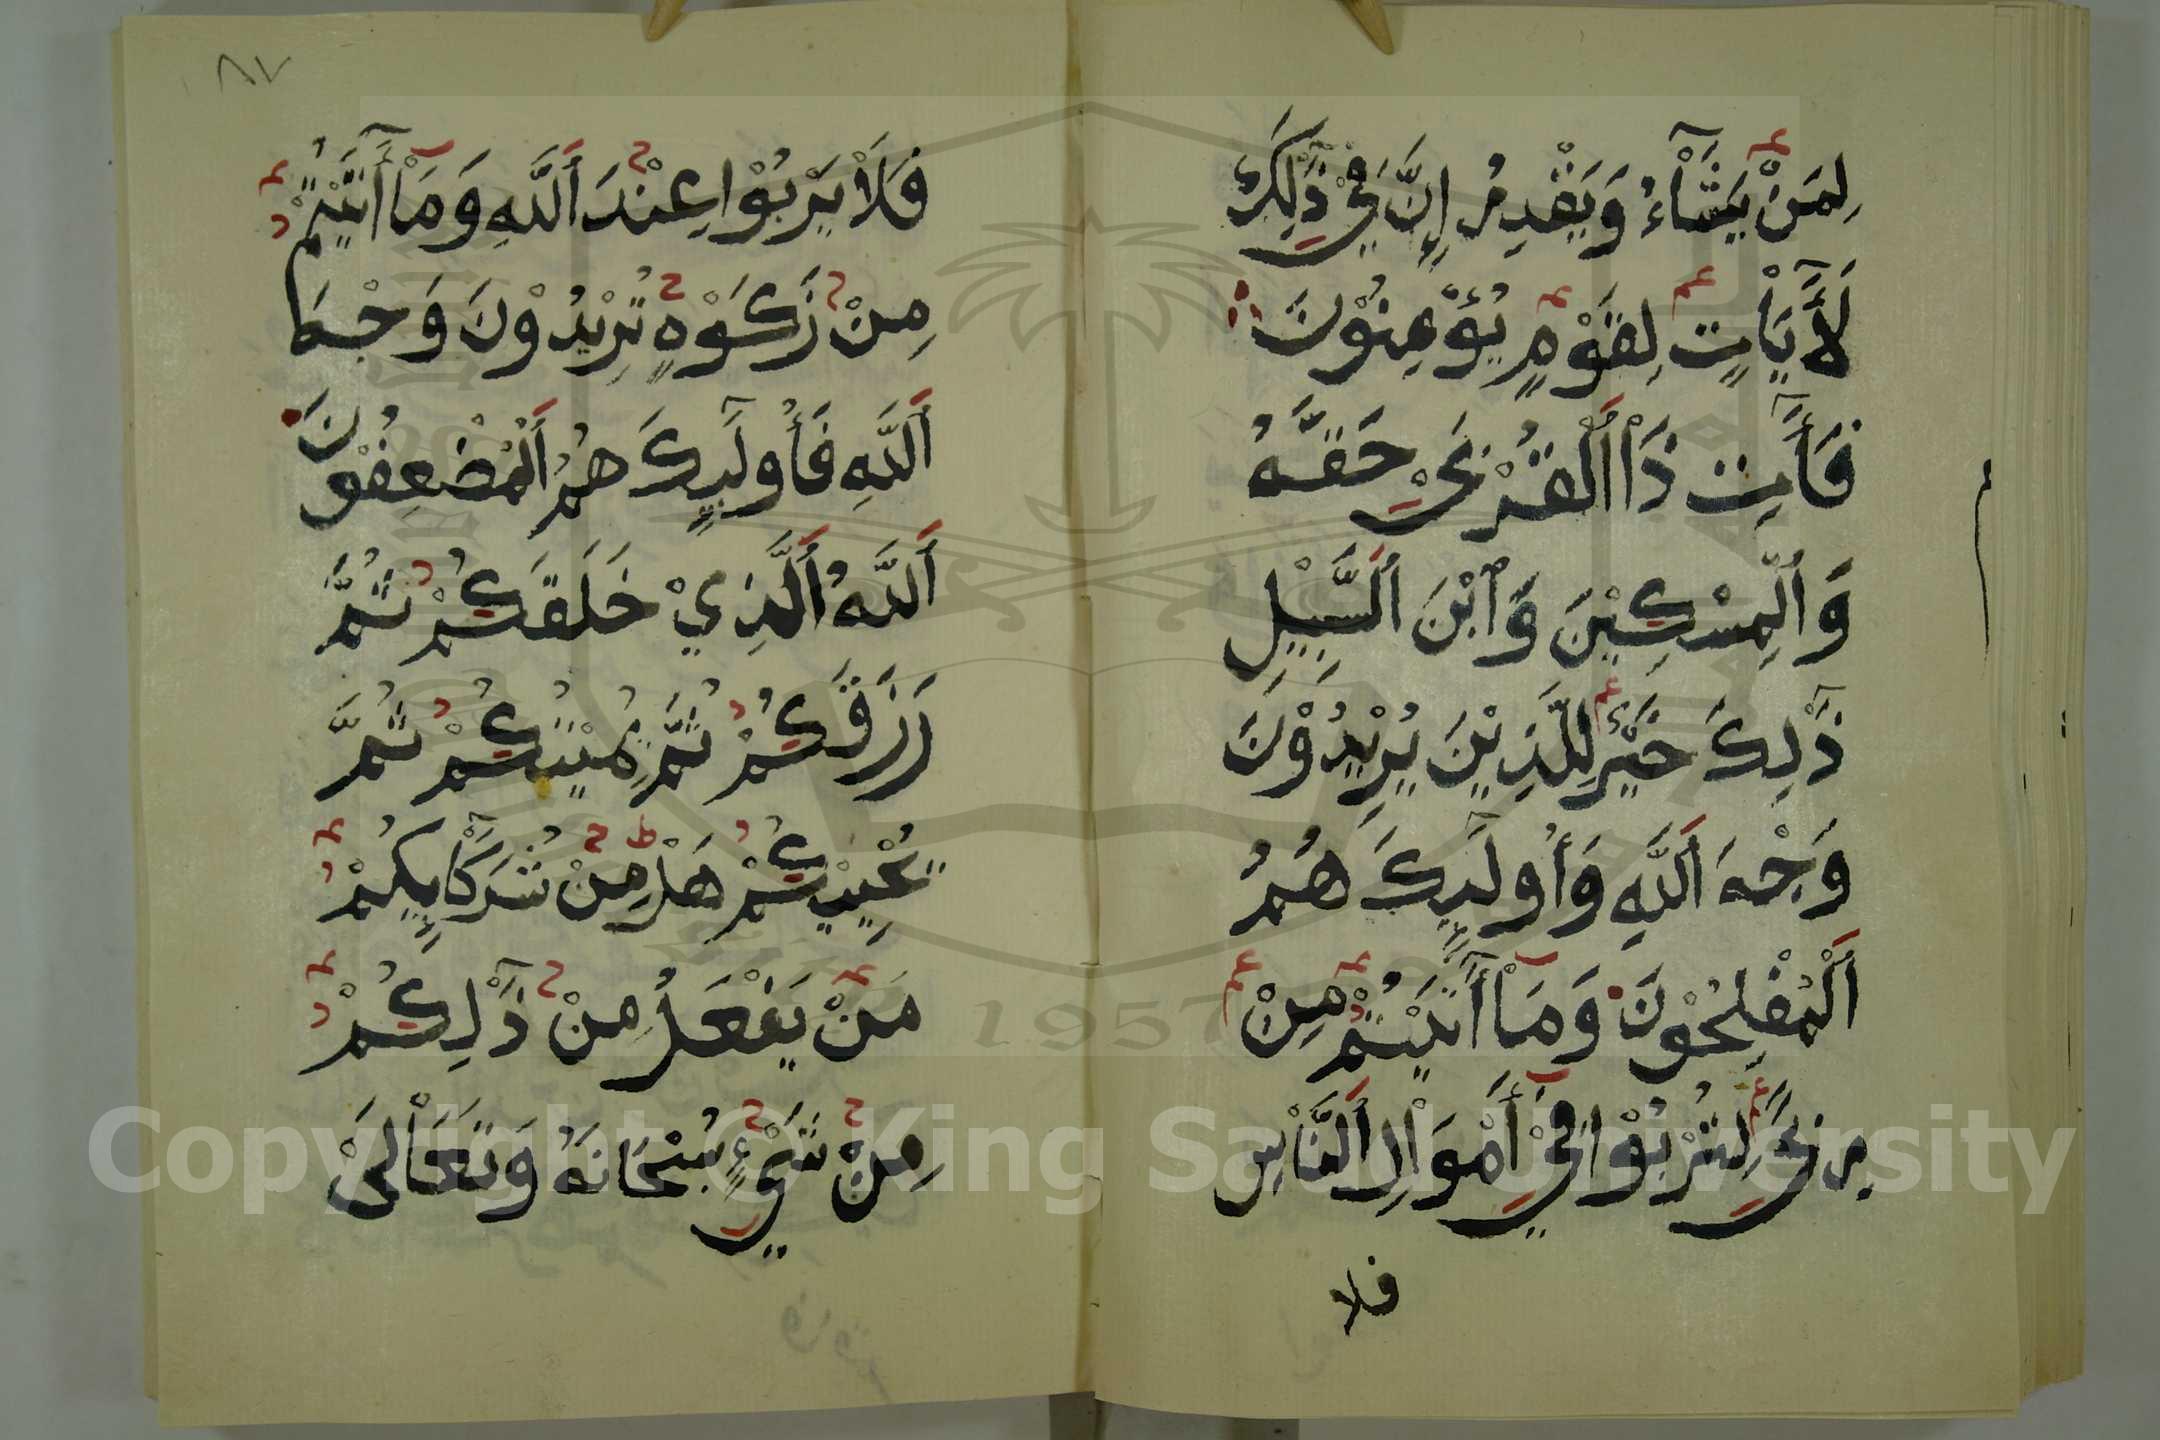 لِمَنْ يَشَآءُ وَيَقْدِرُ إِنَّ فِيْ ذَٰلِكَ
لَأٓيَاتٍ لِقَوْمٍ يُؤْمِنُوْنَ
فَأٓتِ ذَا ٱلْقُرْبَىٰ حَقَّهُ
وَٱلْمِسْكِيْنَ وَٱبْنَ ٱلسَّبِيْلِ
ذَٰلِكَ خَيْرٌ لِلَّذِيْنَ يُرِيْدُوْنَ
وَجْهَ ٱللَّهِ وَأُولَٰٓئِكَ هُمُ
ٱلْمُفْلِحُوْنَ وَمَآ أٓتَيْتُمْ مِنْ
رِبًى لِتُرْبُوْا فِيْٓ أَمْوَالِ ٱلنَّاسِ
فلا
٨٧
فَلَا يَرْبُوْا عِنْدَ ٱللَّهِ وَمَآ أٓتَيْتُمْ
مِنْ زَكَوٰةٍ تُرِيْدُوْنَ وَجْهَ
ٱللَّهِ فَأُولَٰٓئِكَ هُمُ ٱلْمُضْعِفُوْنَ
ٱللَّهُ ٱلَّذِيْ خَلَقَكُمْ ثُمَّ
رَزَقَكُمْ ثُمَّ يُمِيْتُكُمْ ثُمَّ
يُحْيِيْكُمْ هَلْ مِنْ شُرَكَآئِكُمْ
مَنْ يَفْعَلُ مِنْ ذَٰلِكُمْ
مِنْ شَيْءٍ سُبْحَانَهُ وَتَعَالَىٰ
Copyright © King Saud University
1957